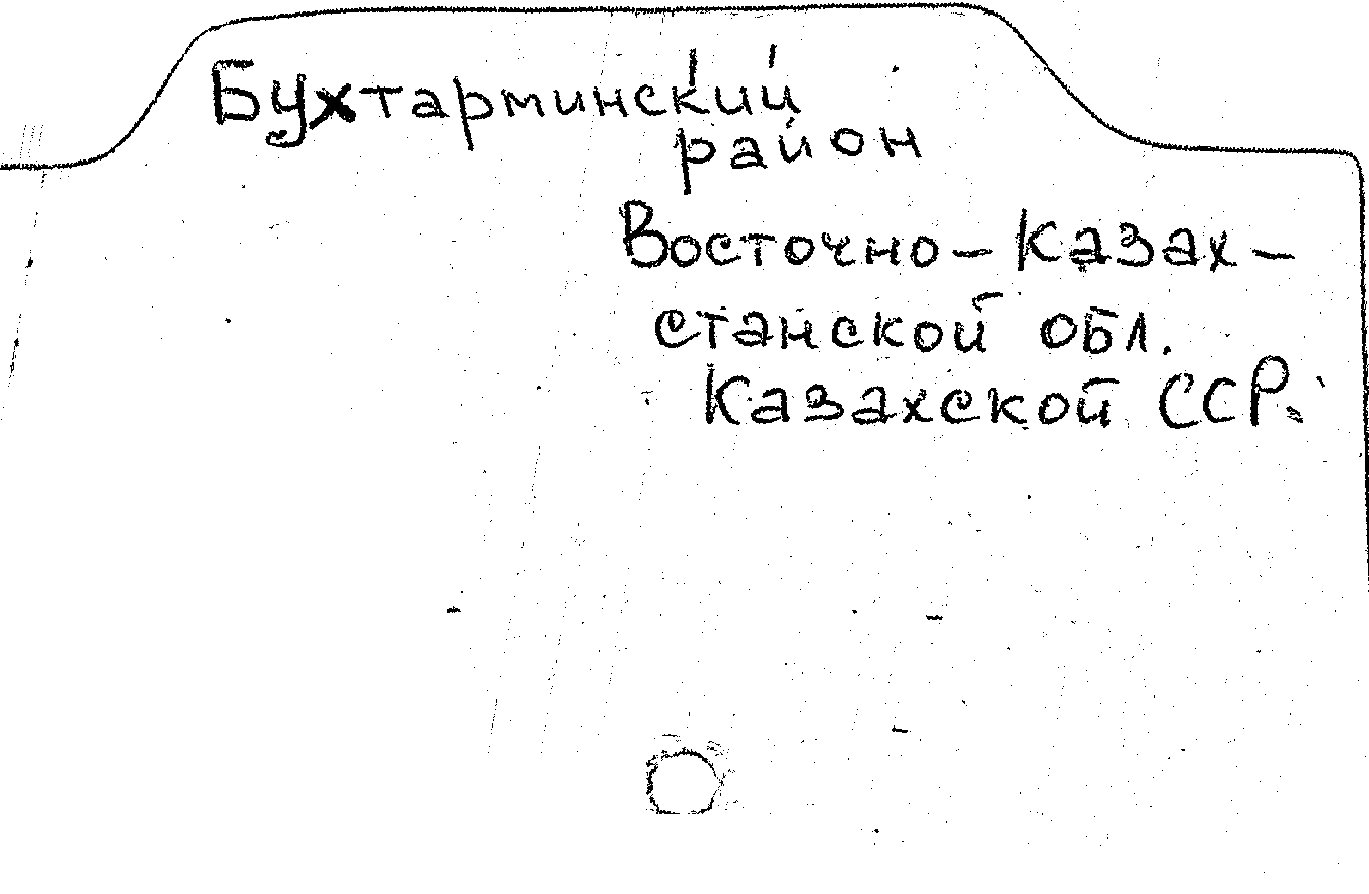 Бухтарминский
район
Восточно-Казах-
станской обл.
Казахской ССР.